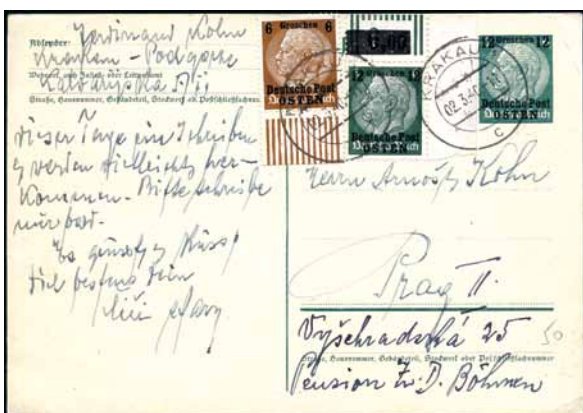 Absender: Ferdinand Kohn
Krakau - Podgorze
Wohnort, auch Zustell- oder Leitpostamt
Straße, Hausnummer, Gebäudeteil, Stockwerk od. Postschließfachnummer
dieser Tage ein Schreiben
werden vielleicht her-
kommen. Bitte schreibe
mir bald.
Es grüsst Küsst
Dich bestens Dein
6 Groschen 6
Deutsche Post
OSTEN
6,00
12 Groschen 12
Deutsche Post
OSTEN
12 Groschen 12
Deutsche Post
OSTEN
KRAKAU
02.3.40
c
Herrn Arnošt Kohn
Prag II.
Vyšehradská 25
50
Straße, Hausnummer, Gebäudeteil, Stockwerk oder Postschließfachnummer
Pension Zv. D. Böhmen